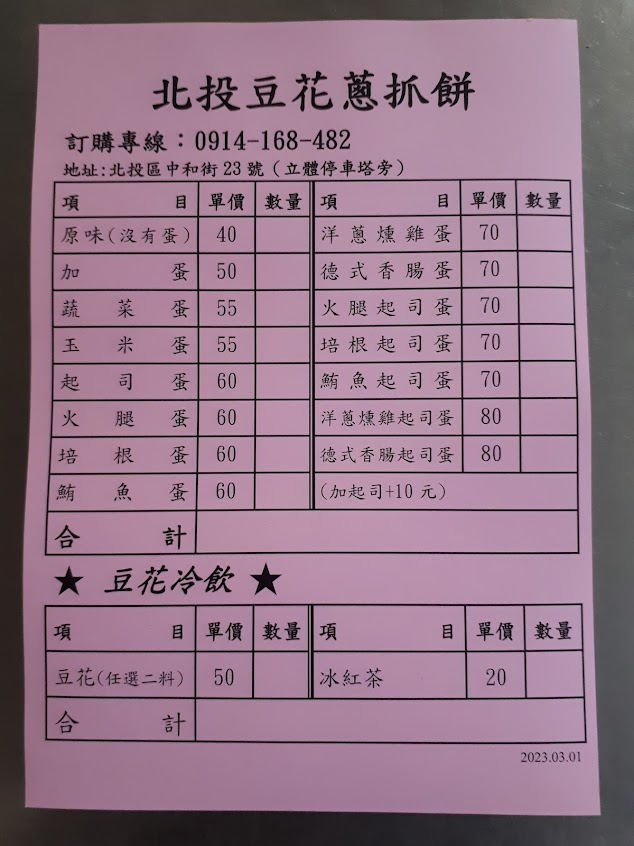 北投豆花蔥抓餅
訂購專線：0914-168-482
地址:北投區中和街23號（立體停車塔旁）
項目 單價 數量 項目 單價 數量
原味(沒有蛋) 40 洋蔥燻雞蛋 70
加蛋 50 德式香腸蛋 70
蔬菜蛋 55 火腿起司蛋 70
玉米蛋 55 培根起司蛋 70
起司蛋 60 鮪魚起司蛋 70
火腿蛋 60 洋蔥燻雞起司蛋 80
培根蛋 60 德式香腸起司蛋 80
鮪魚蛋 60 (加起司+10元)
合計
★ 豆花冷飲 ★
項目 單價 數量 項目 單價 數量
豆花(任選二料) 50 冰紅茶 20
合計
2023.03.01